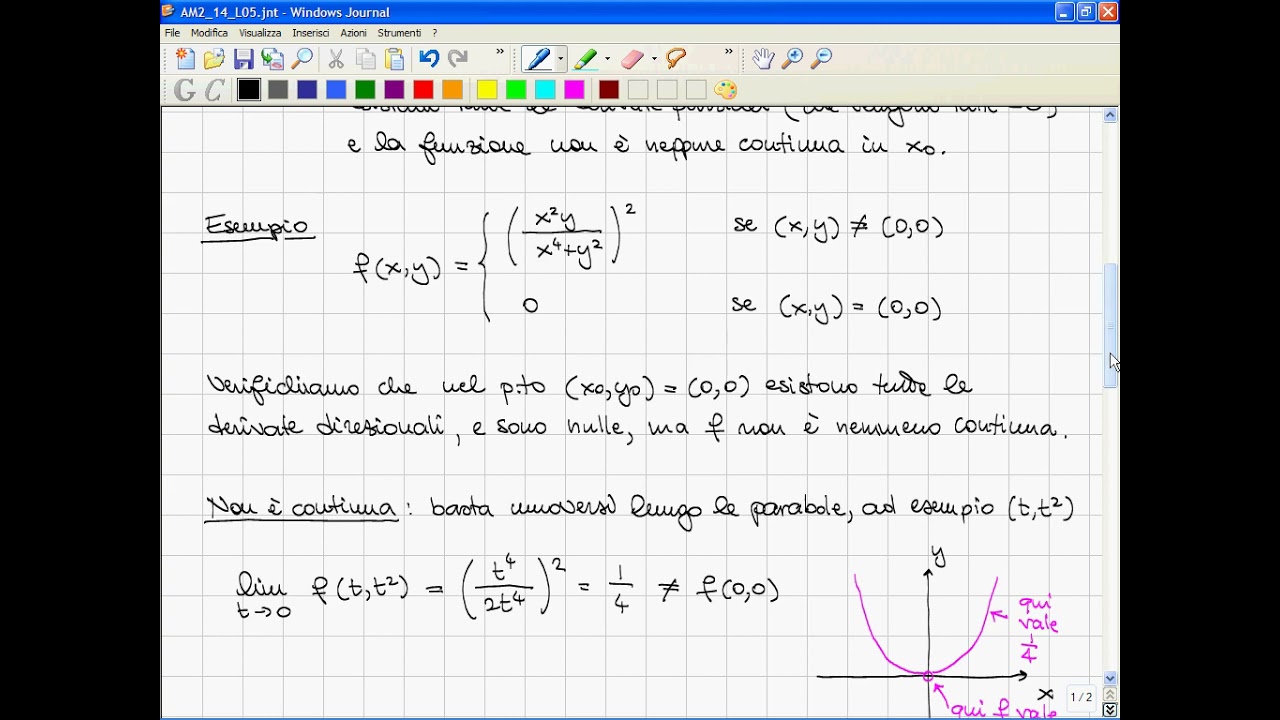 AM2_14_L05.jnt - Windows Journal
File Modifica Visualizza Inserisci Azioni Strumenti ?
e la funzione non è neppure continua in x₀.
Esempio
f(x,y) = { (x²y / x⁴+y²)² se (x,y) ≠ (0,0)
0 se (x,y) = (0,0)
Verifichiamo che nel p.to (x₀,y₀) = (0,0) esistono tutte le
derivate direzionali, e sono nulle, ma f non è nemmeno continua.
Non è continua: basta muoversi lungo le parabole, ad esempio (t,t²)
lim t→0 f(t,t²) = (t⁴ / 2t⁴)² = 1/4 ≠ f(0,0)
y
qui
vale
1/4
x
1 / 2
qui f vale